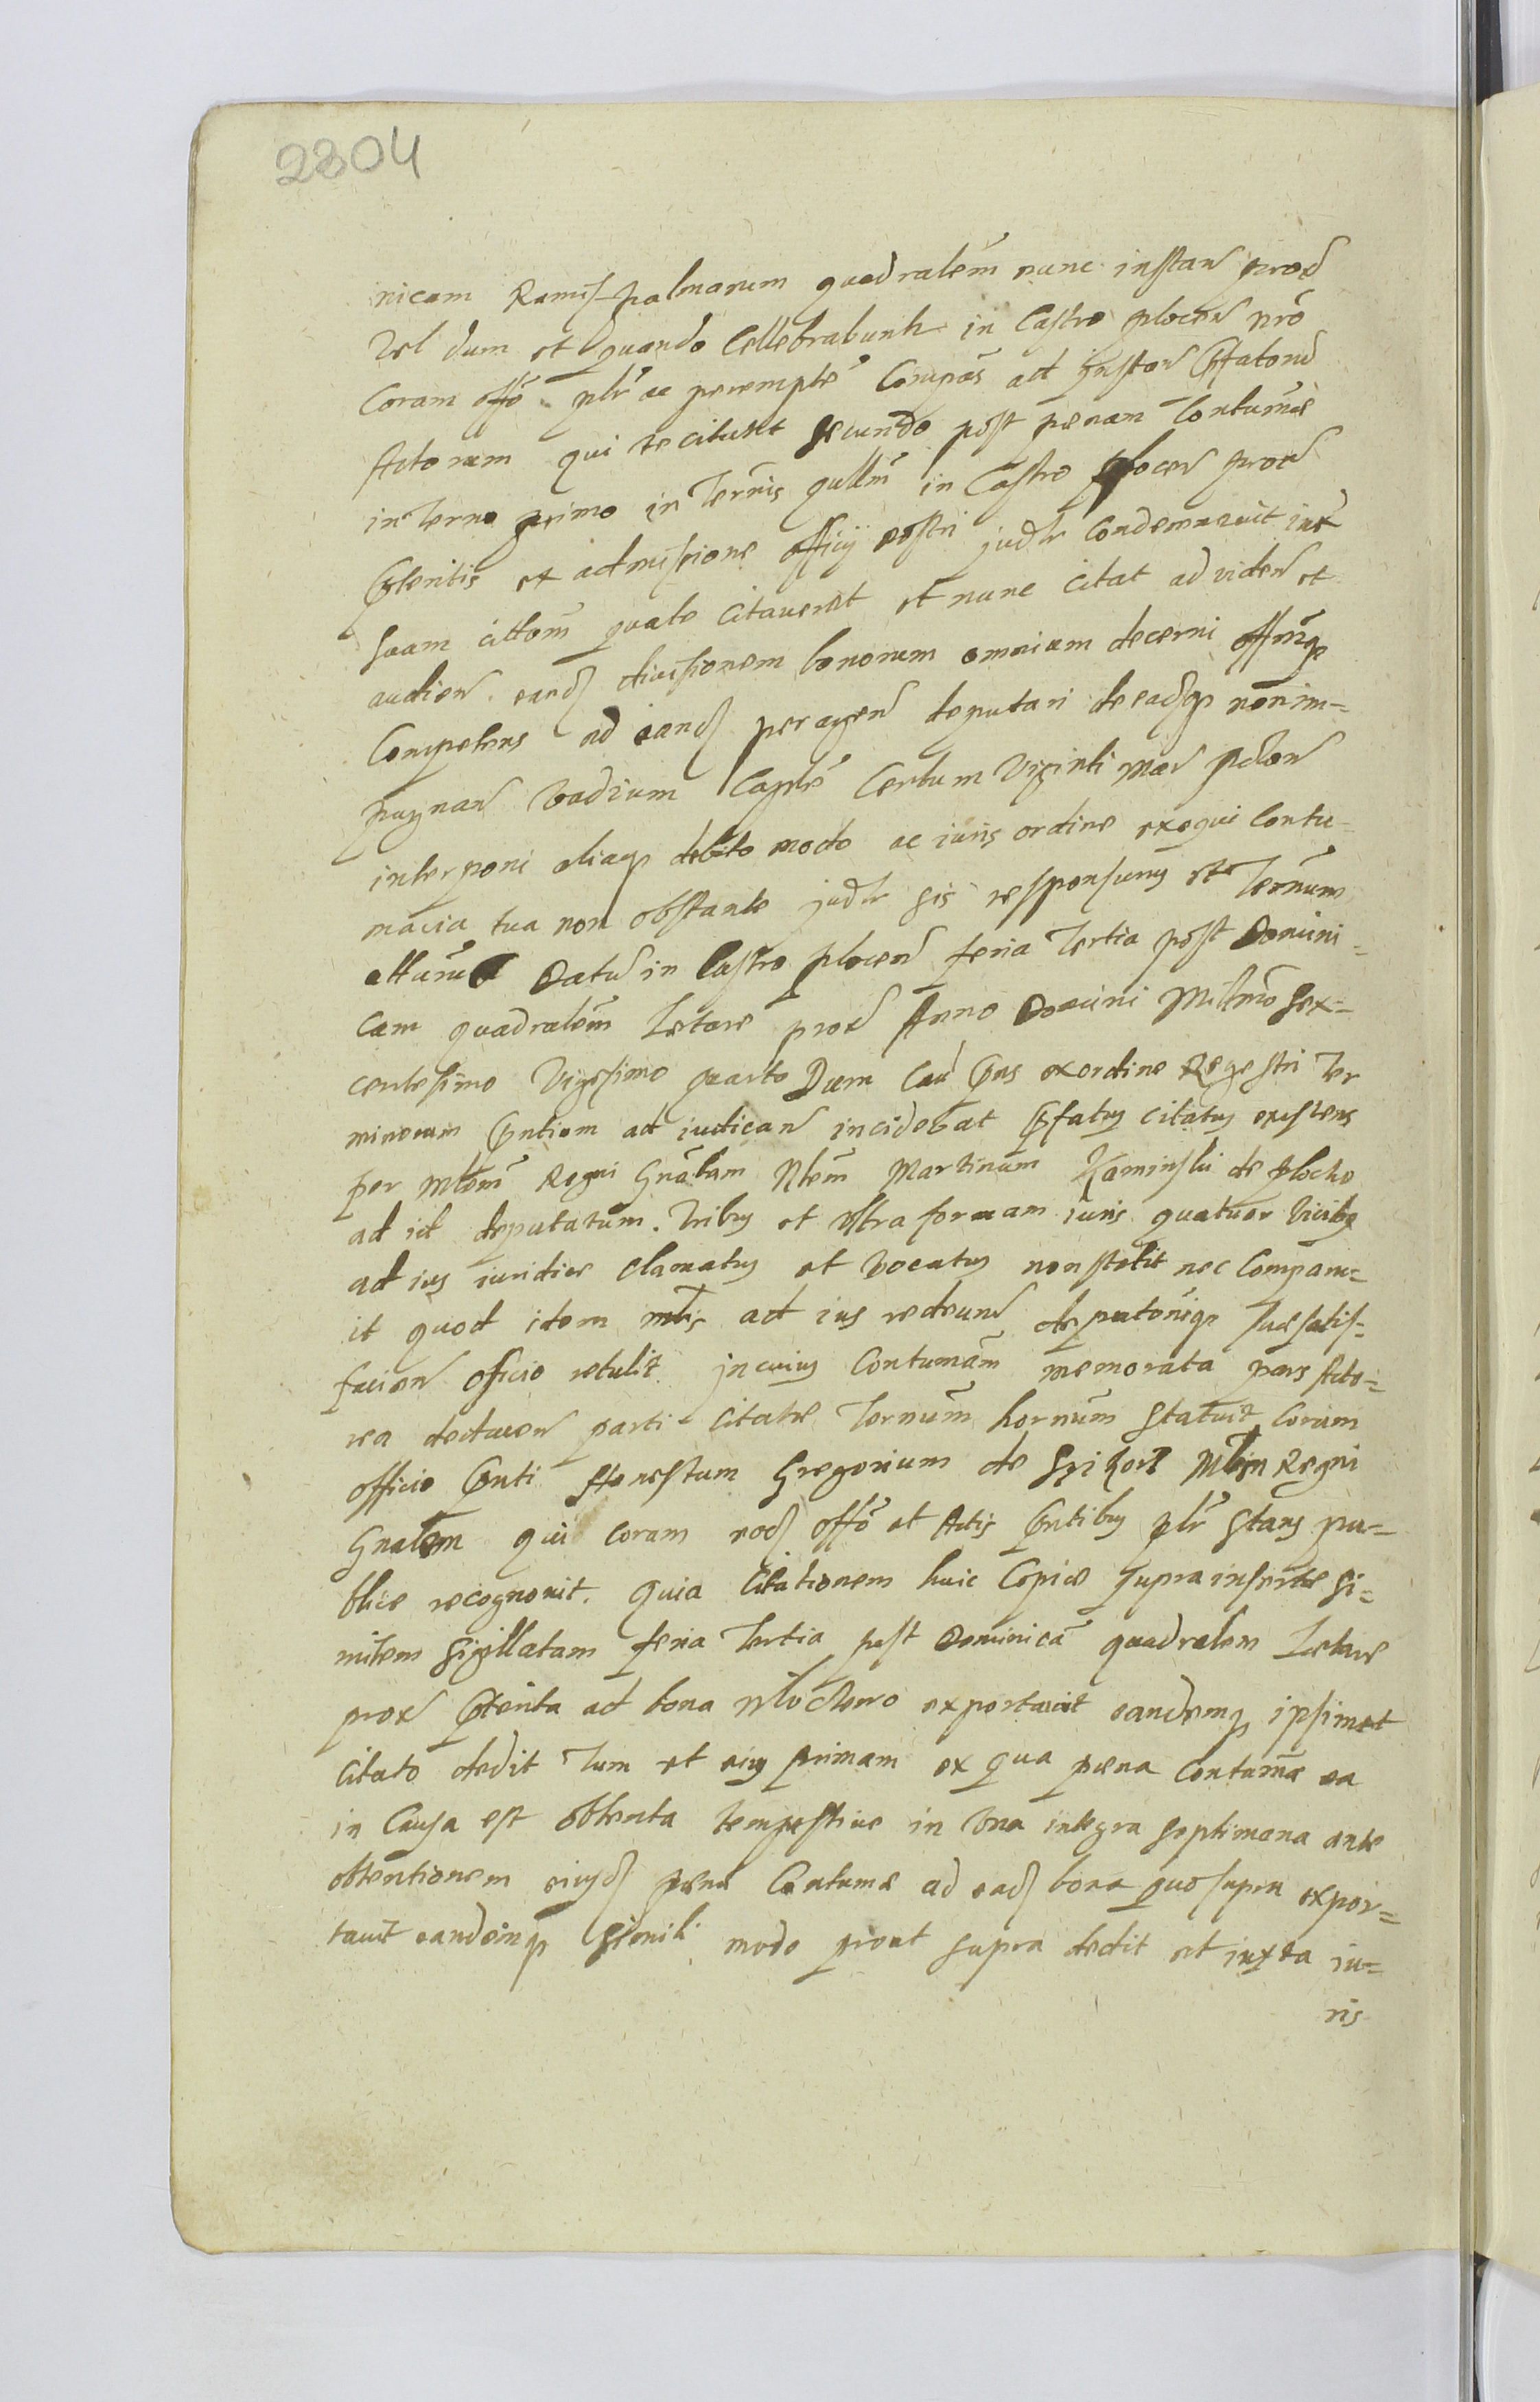 2804
nicam Ramis palmarum quadralem nunc instan prox
Vel dum et quando Cellebrabunt in Castro plocen pro
Coram offo plr ac perempte Compas ad Instan Pfatorum
Actorum qui te citarunt Secundo post penam Contumae
in Termo primo in Ternis qullm in Castro plocen prox
Pteritis ex admissione officij nostri judr Condemnauit iux
suam cittom quate citauerunt et nunc citat ad viden et
audien eand diuisionem bonorum omnium decerni offmqz
Competens ad eand peragen deputari de eadqz non im=
pugnan Vadium Capte Certum Viginti mar polon
interponi aliaqz debito modo ac iuris ordine exequi Contu=
macia tua non obstante judr sis responsurus et Ternum
atturus Datu in Castro plocen feria Tertia post Domini=
cam quadralem Letare prox Anno Domini Millmo Sex=
centesimo Vigesimo quarto Dum Cau Pns ex ordine Regestri Ter
minorum Pntium ad iudican incidebat Pfatus citatus existens
per Mtem Regni Gnalem Ntem Martinum Kaminski de plocko
ad id deputatum. Tribus et Vltra formam iuris quatuor Vicibz
ad ius iuridice Clamatus et Vocatus non stetit nec Comparu=
it quod idem mtis ad ius redeund deputoniqz suae satis=
facien officio retulit. in cuius Contumam memorata pars Acto=
rea dectauen parti Citatae Ternum hornum Statuit Coram
officio Pnti Honestum Gregorium de Mtem Regni
Gnalem qui Coram eod offo et Actis Pntibus plr Stans pu=
blice recognouit. Quia Citationem huic Copiae supra insertae Si=
milem Sigillatam feria Tertia post Dominica quadralem Letare
prox Pterita ad bona exportauit eandemqz ipsimet
Citato dedit Tum et eius primam ex qua paena Contumae ea
in Causa est obtenta tempestiue in Vna integra septimana ante
obtentionem eiusd paenae Contumae ad ead bona quo supra expor=
tauit eandemqz Simili modo prout supra dedit et iuxta iu=
ris